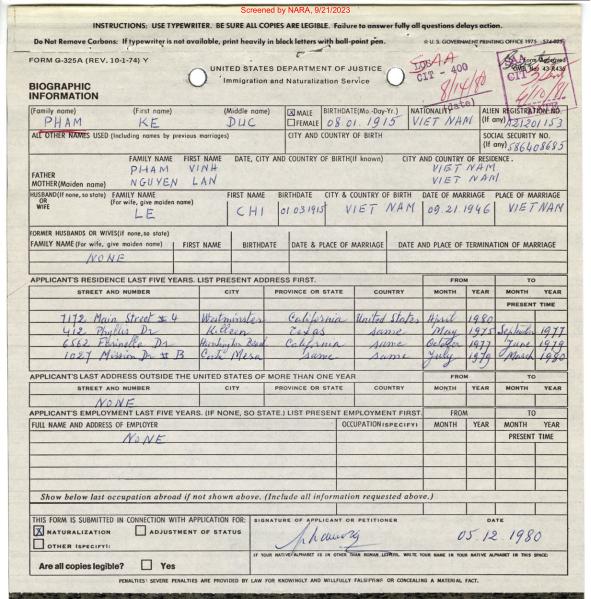 Screened by NARA, 9/21/2023
INSTRUCTIONS: USE TYPEWRITER. BE SURE ALL COPIES ARE LEGIBLE. Failure to answer fully all questions delays action.
Do Not Remove Carbons: If typewriter is not available, print heavily in block letters with ball-point pen.
☆ U. S. GOVERNMENT PRINTING OFFICE 1975
FORM G-325A (REV. 10-1-74) Y
UNITED STATES DEPARTMENT OF JUSTICE
Immigration and Naturalization Service
LOS AA
CIT - 400
8/14/80
BIOGRAPHIC
INFORMATION
(Family name) (First name) (Middle name) ☒ MALE BIRTHDATE (Mo.-Day-Yr.) NATIONALITY ALIEN REGISTRATION NO.
PHAM KE DUC ☐ FEMALE 08.01.1915 VIET NAM (If any) A21201153
ALL OTHER NAMES USED (Including names by previous marriages) CITY AND COUNTRY OF BIRTH SOCIAL SECURITY NO.
(If any) 586408685
FAMILY NAME FIRST NAME DATE, CITY AND COUNTRY OF BIRTH (If known) CITY AND COUNTRY OF RESIDENCE.
FATHER PHAM VINH VIET NAM
MOTHER (Maiden name) NGUYEN LAN VIET NAM
HUSBAND (If none, so state) OR WIFE FAMILY NAME (For wife, give maiden name) FIRST NAME BIRTHDATE CITY & COUNTRY OF BIRTH DATE OF MARRIAGE PLACE OF MARRIAGE
LE CHI 01 03 1915 VIET NAM 09.21.1946 VIET NAM
FORMER HUSBANDS OR WIVES (if none, so state)
FAMILY NAME (For wife, give maiden name) FIRST NAME BIRTHDATE DATE & PLACE OF MARRIAGE DATE AND PLACE OF TERMINATION OF MARRIAGE
NONE
APPLICANT'S RESIDENCE LAST FIVE YEARS. LIST PRESENT ADDRESS FIRST. FROM TO
STREET AND NUMBER CITY PROVINCE OR STATE COUNTRY MONTH YEAR MONTH YEAR
PRESENT TIME
7172 Main Street # 4 Westminster California United States April 1980
412 Phyllis Dr Killeen Texas same May 1975 September 1977
6562 Parinella Dr Huntington Beach California same October 1977 June 1979
1027 Mission Dr # B Costa Mesa same same July 1979 March 1980
APPLICANT'S LAST ADDRESS OUTSIDE THE UNITED STATES OF MORE THAN ONE YEAR FROM TO
STREET AND NUMBER CITY PROVINCE OR STATE COUNTRY MONTH YEAR MONTH YEAR
NONE
APPLICANT'S EMPLOYMENT LAST FIVE YEARS. (IF NONE, SO STATE.) LIST PRESENT EMPLOYMENT FIRST. FROM TO
FULL NAME AND ADDRESS OF EMPLOYER OCCUPATION (SPECIFY) MONTH YEAR MONTH YEAR
NONE PRESENT TIME
Show below last occupation abroad if not shown above. (Include all information requested above.)
THIS FORM IS SUBMITTED IN CONNECTION WITH APPLICATION FOR: SIGNATURE OF APPLICANT OR PETITIONER DATE
☒ NATURALIZATION ☐ ADJUSTMENT OF STATUS 05.12.1980
☐ OTHER (SPECIFY):
IF YOUR NATIVE ALPHABET IS IN OTHER THAN ROMAN LETTERS, WRITE YOUR NAME IN YOUR NATIVE ALPHABET IN THIS SPACE:
Are all copies legible? ☐ Yes
PENALTIES: SEVERE PENALTIES ARE PROVIDED BY LAW FOR KNOWINGLY AND WILLFULLY FALSIFYING OR CONCEALING A MATERIAL FACT.